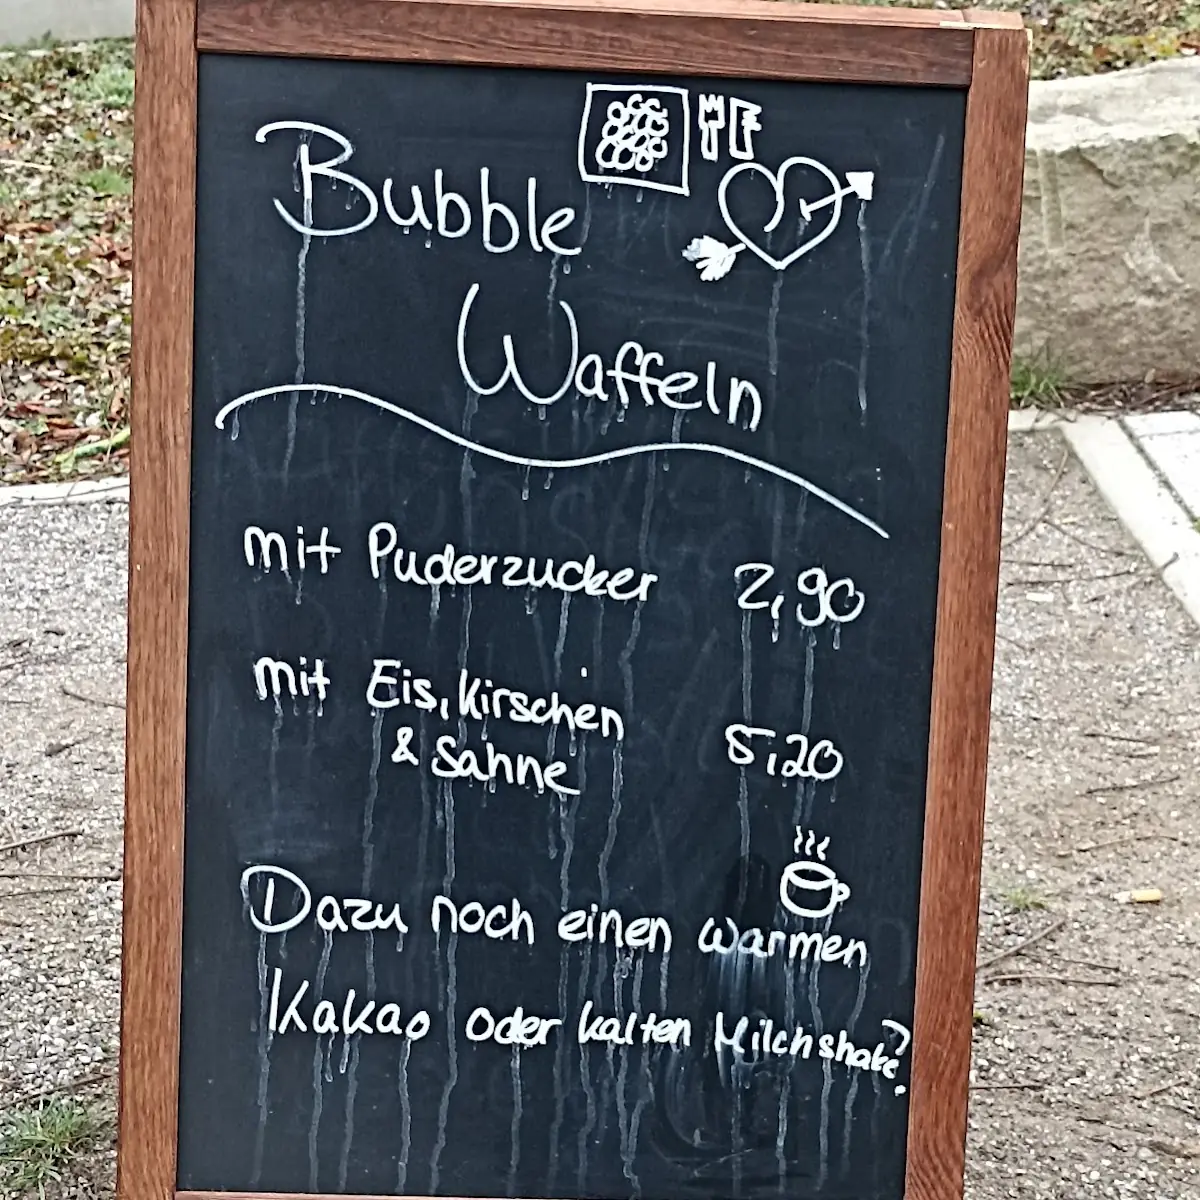 Bubble
Waffeln
mit Puderzucker 2,90
mit Eis, Kirschen
& Sahne 5,20
Dazu noch einen warmen
Kakao oder kalten Milchshake?